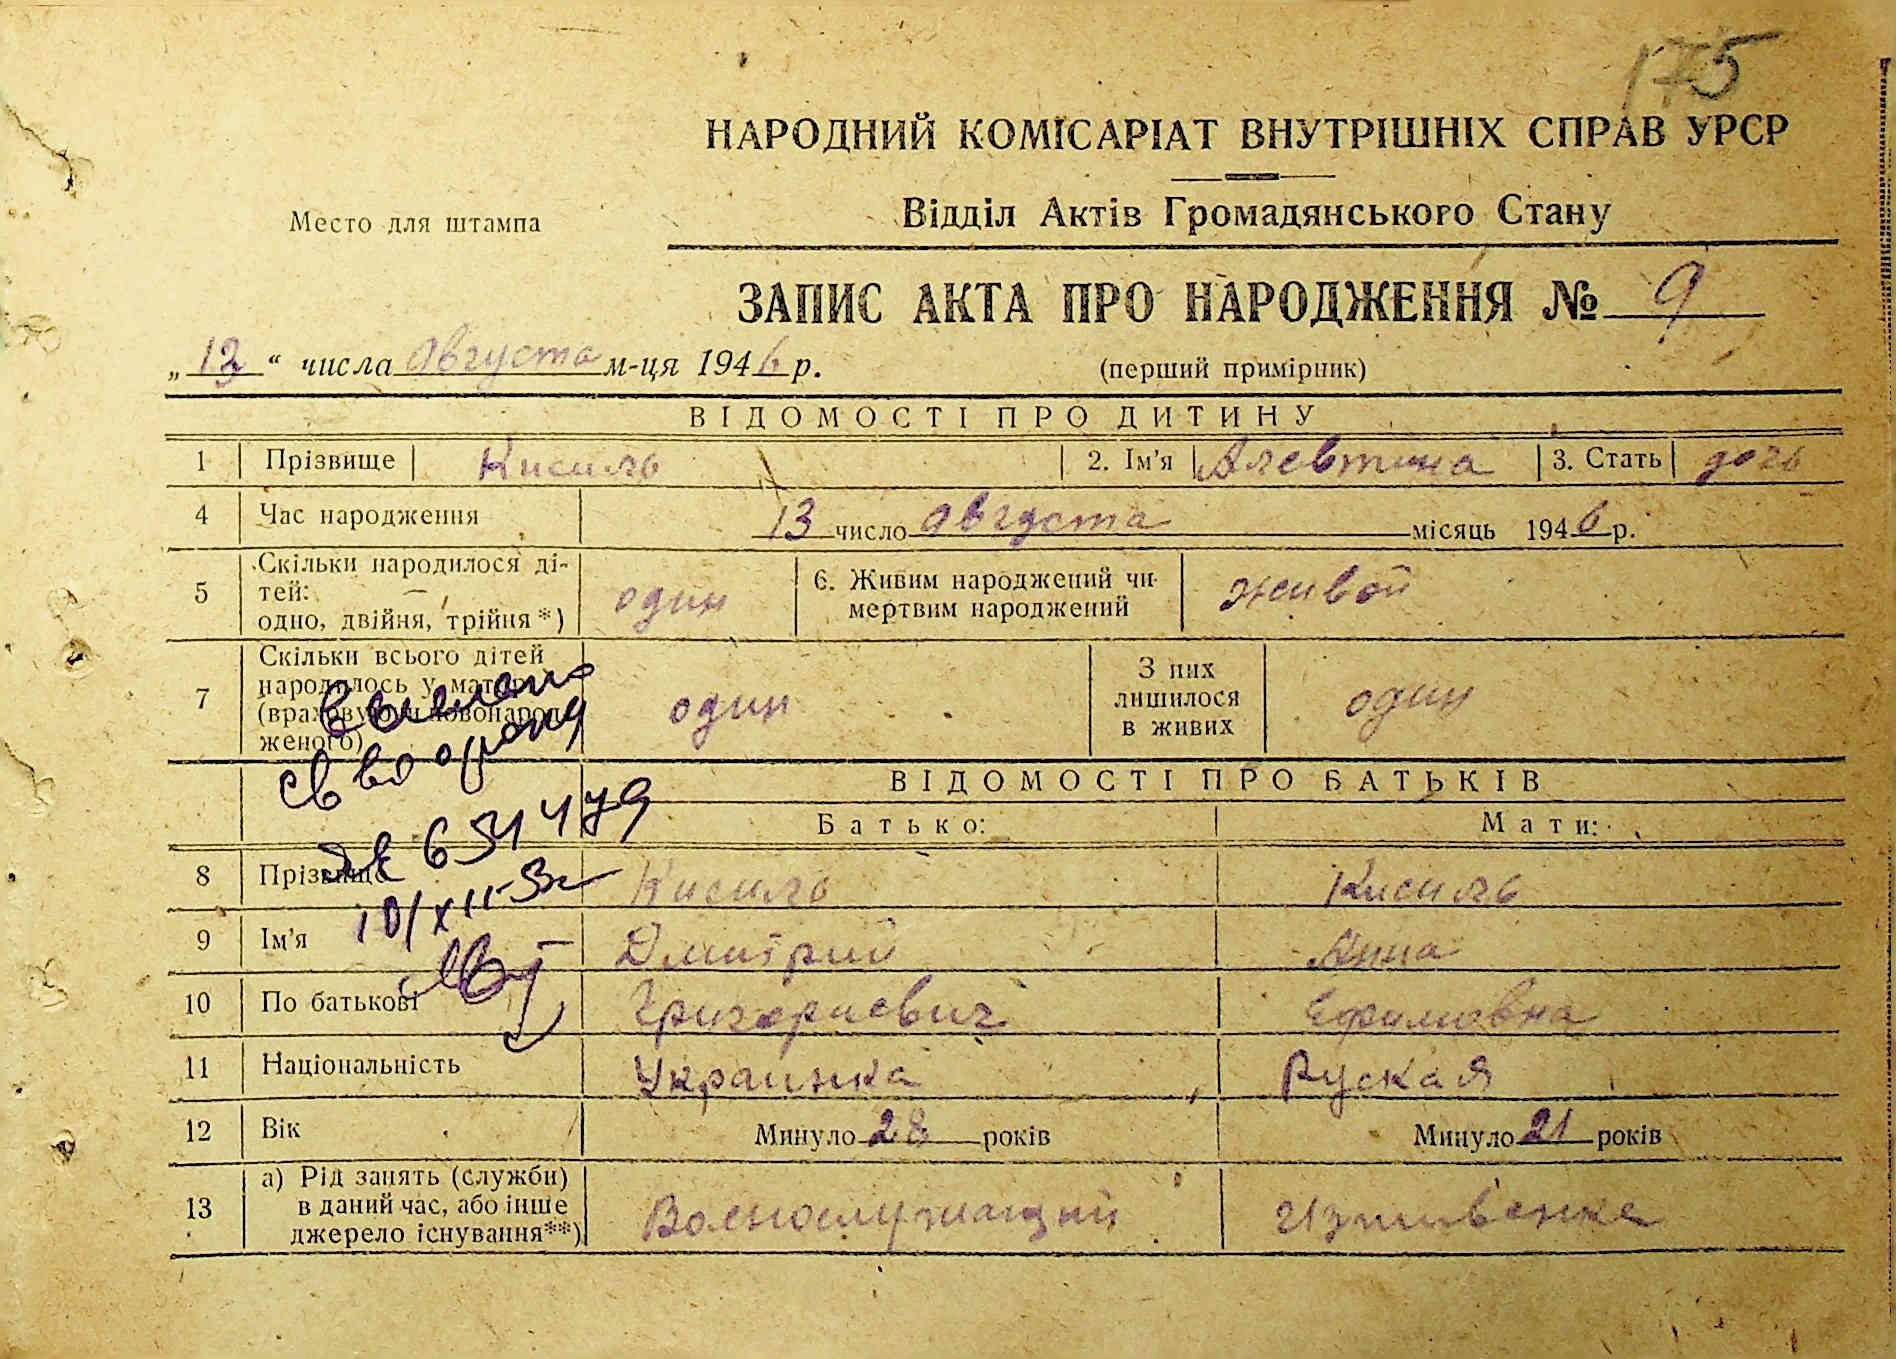 175
НАРОДНИЙ КОМІСАРІАТ ВНУТРІШНІХ СПРАВ УРСР
Место для штампа
Відділ Актів Громадянського Стану
ЗАПИС АКТА ПРО НАРОДЖЕННЯ № 9
„13“ числа Августа м-ця 1946 р.
(перший примірник)
ВІДОМОСТІ ПРО ДИТИНУ
1 Прізвище Кисиль 2. Ім'я Алевтина 3. Стать дочь
4 Час народження 13 число Августа місяць 1946 р.
5 Скільки народилося ді-
тей:
одно, двійня, трійня*)
один
6. Живим народжений чи
мертвим народжений
живой
7 Скільки всього дітей
народилось у матері
(враховуючи новонарод-
женого)
один
З них
лишилося
в живих
один
св во
651479
10/XII-
ВІДОМОСТІ ПРО БАТЬКІВ
Батько: Мати:
8 Прізвище Кисиль Кисиль
9 Ім'я Дмитрий Анна
10 По батькові Григориевич Ефимовна
11 Національність Украинка Руская
12 Вік Минуло 28 років Минуло 21 років
13 а) Рід занять (служби)
в даний час, або інше
джерело існування**)
Военослужащий